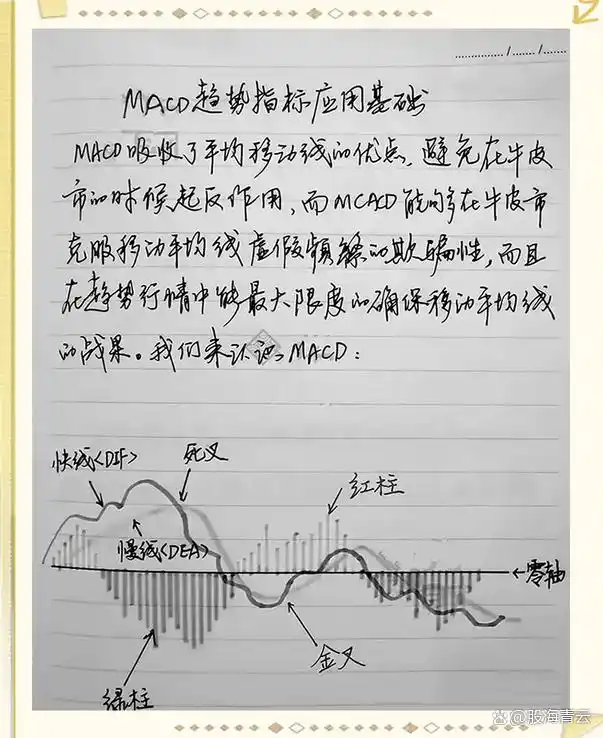 ....../....../......
MACD趋势指标应用基础
MACD吸收了平均移动线的优点，避免在牛皮
市的时候起反作用，而MCACD能够在牛皮市
克服移动平均线虚假频繁的欺骗性，而且
在趋势行情中能最大限度的确保移动平均线
的战果。我们来认识MACD：
快线<DIF>
死叉
红柱
慢线<DEA>
←零轴
金叉
绿柱
@股海青云